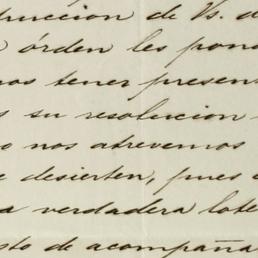 duccion de Vs. d
órden les pond
nos tener present
s su resolucion
o nos atrevemos
e desierten, pues
a verdadera lote
sto de acompaña